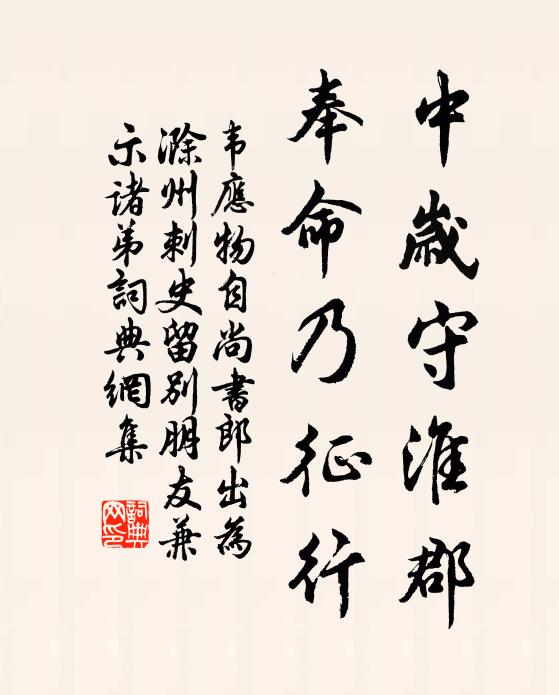 中歲守淮郡
奉命乃征行
韦應物自尚書郎出為
滁州刺史留别朋友兼
示诸弟詞典網集
詞典
网印